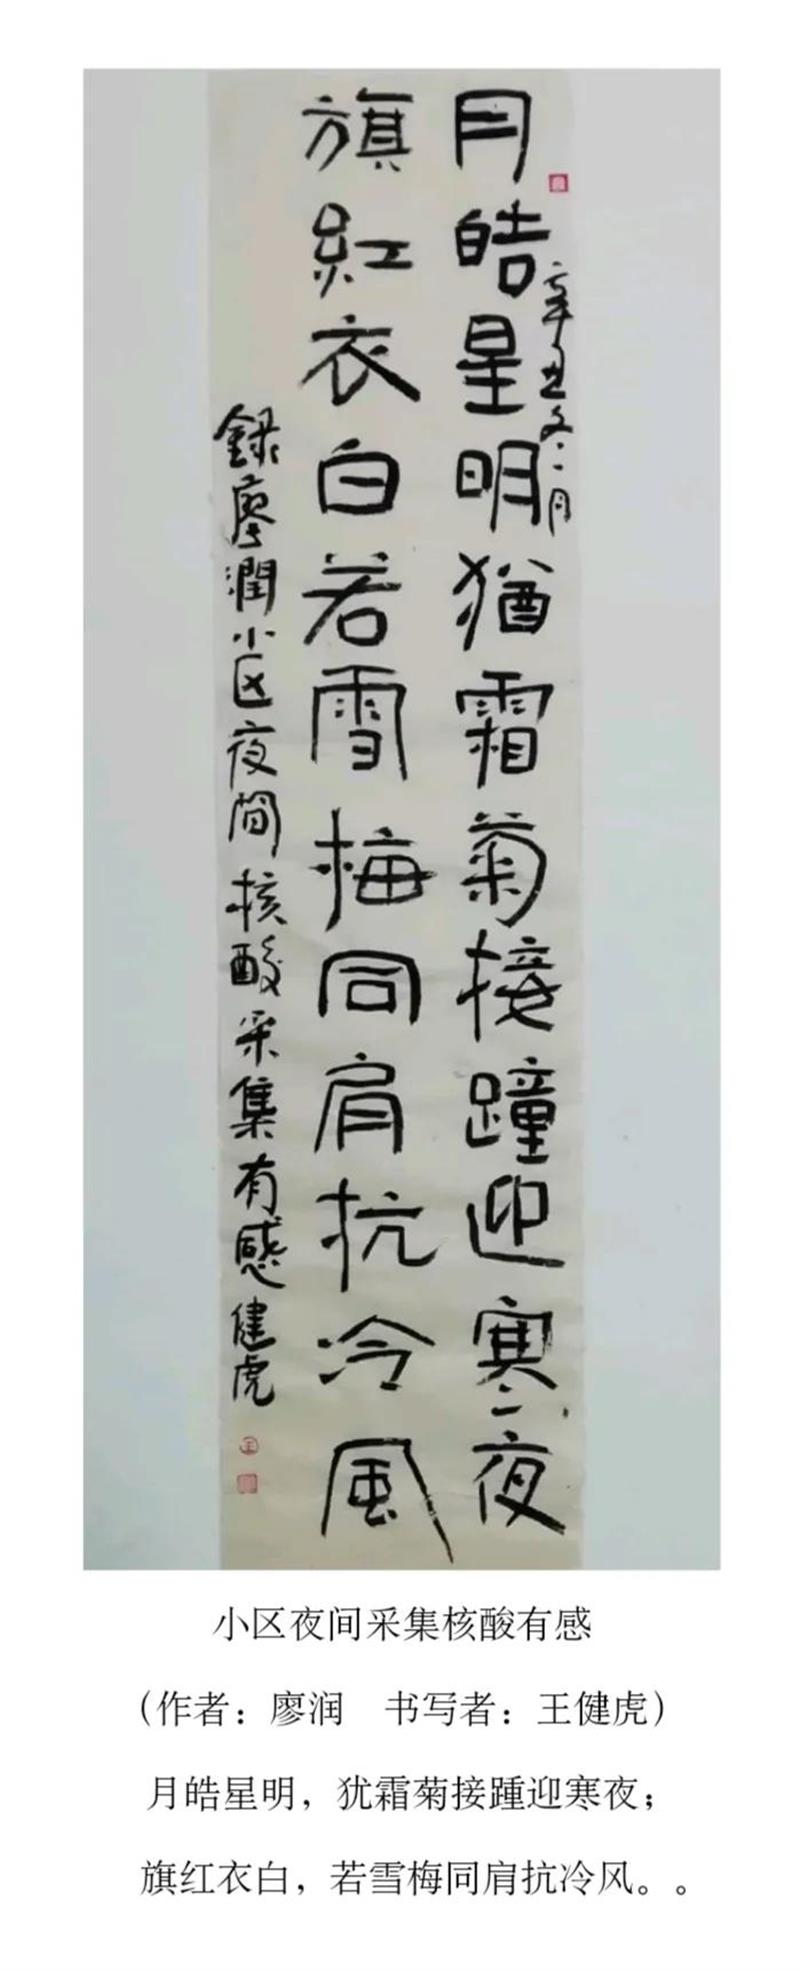 月皓星明猶霜菊接踵迎寒夜
辛丑冬一月
旗紅衣白若雪梅同肩抗冷風
録廖潤小区夜间核酸采集有感健虎
小区夜间采集核酸有感
（作者：廖润　书写者：王健虎）
月皓星明，犹霜菊接踵迎寒夜；
旗红衣白，若雪梅同肩抗冷风。。